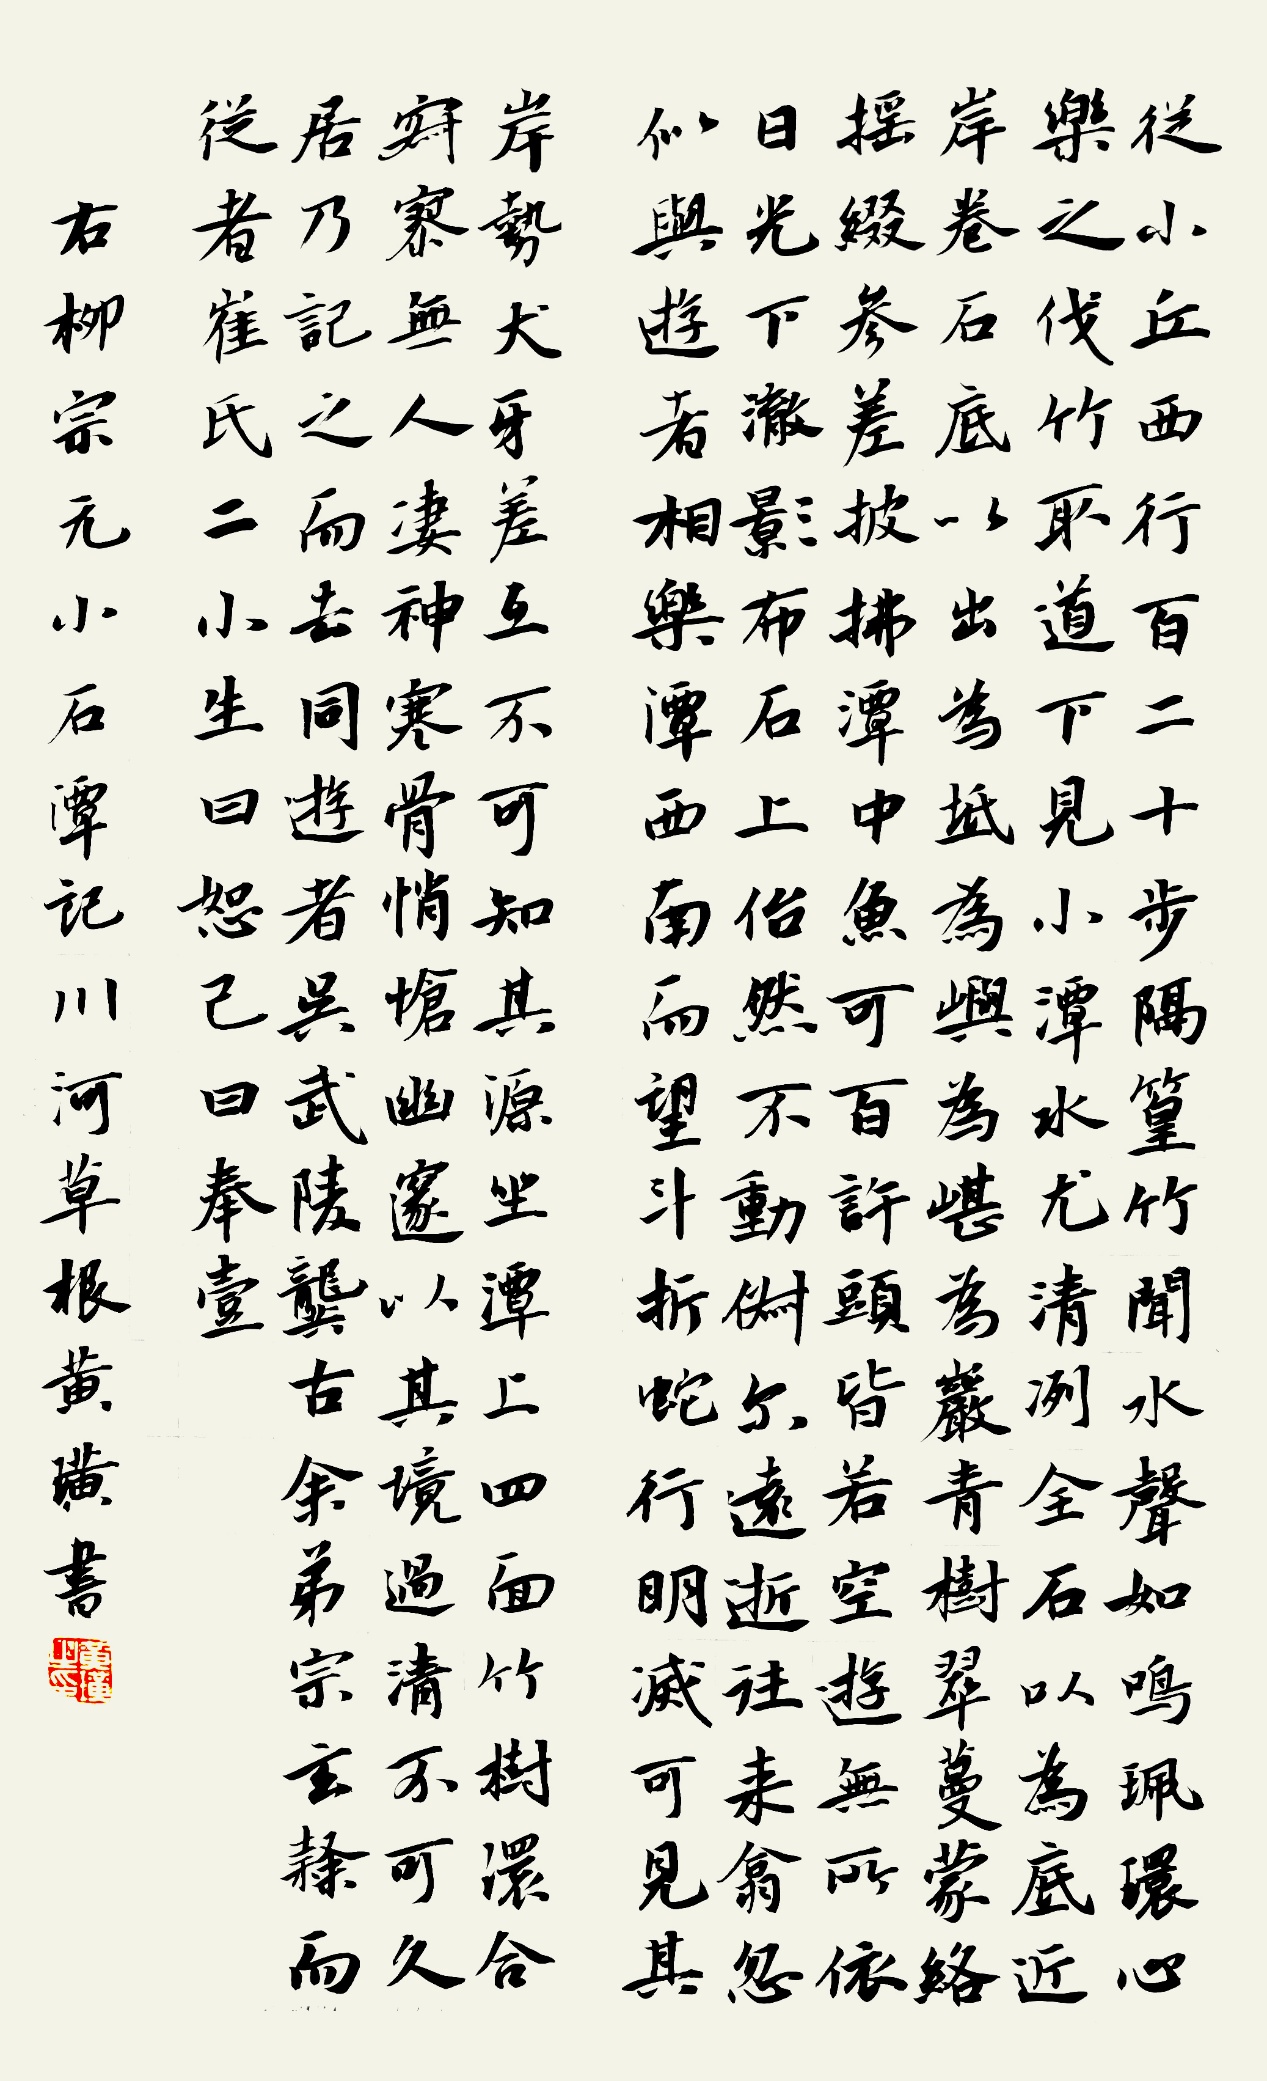 從小丘西行百二十步隔篁竹聞水聲如鳴珮環心
樂之伐竹取道下見小潭水尤清冽全石以為底近
岸卷石底以出為坻為嶼為嵁為巖青樹翠蔓蒙絡
搖綴參差披拂潭中魚可百許頭皆若空遊無所依
日光下澈影布石上佁然不動俶尔遠逝往来翕忽
似與遊者相樂潭西南而望斗折蛇行明滅可見其
岸勢犬牙差互不可知其源坐潭上四面竹樹環合
寂寥無人凄神寒骨悄愴幽邃以其境過清不可久
居乃記之而去同遊者吳武陵龔古余弟宗玄隸而
從者崔氏二小生曰恕己曰奉壹
右柳宗元小石潭記川河草根黄璜書